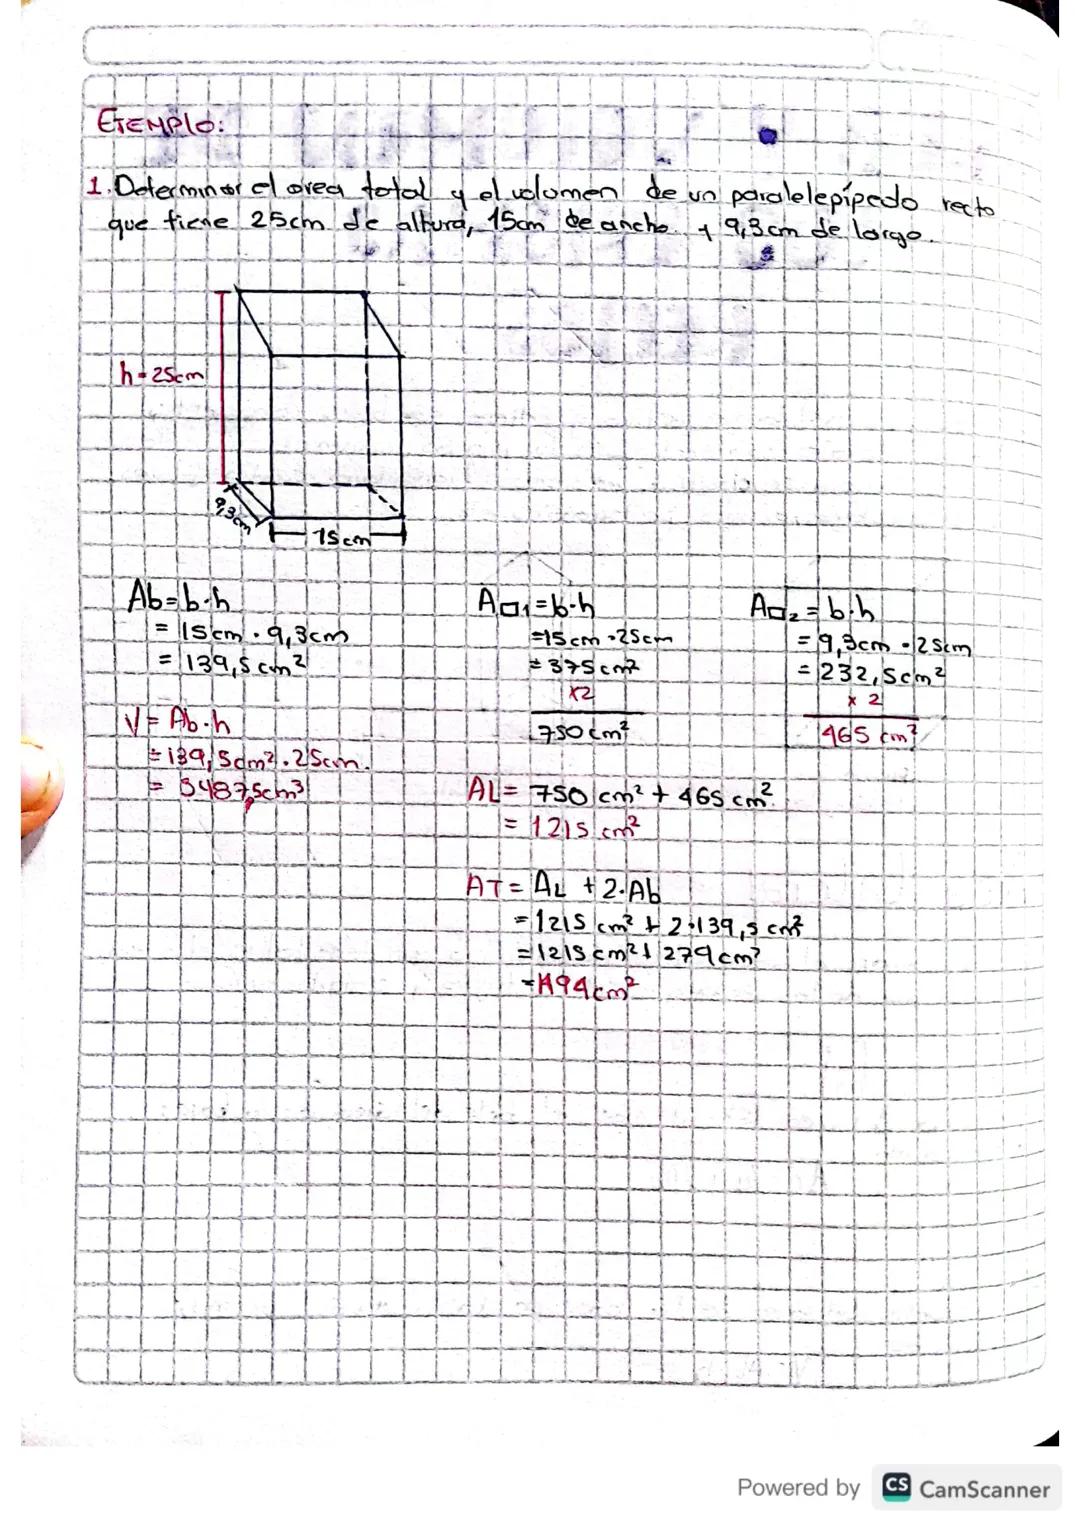 EJEMPLO:
1. Determinar el area total y el volumen de un paralelepípedo recto
que tiene 25cm de altura, 15cm de ancho y 9,3cm de largo.
h=25cm
9,3cm
15cm
Ab=b·h
= 15cm · 9,3cm
= 139,5cm²
V= Ab·h
=139,5cm²·25cm.
= 3487,5cm³
A▭1=b·h
=15cm·25cm
=375cm²
x2
750cm²
A▭2=b·h
=9,3cm·25cm
=232,5cm²
x 2
465 cm²
AL= 750 cm² + 465 cm²
= 1215 cm²
AT= AL + 2·Ab
=1215 cm² + 2·139,5 cm²
=1215cm²+279cm²
=1494cm²
Powered by CS CamScanner